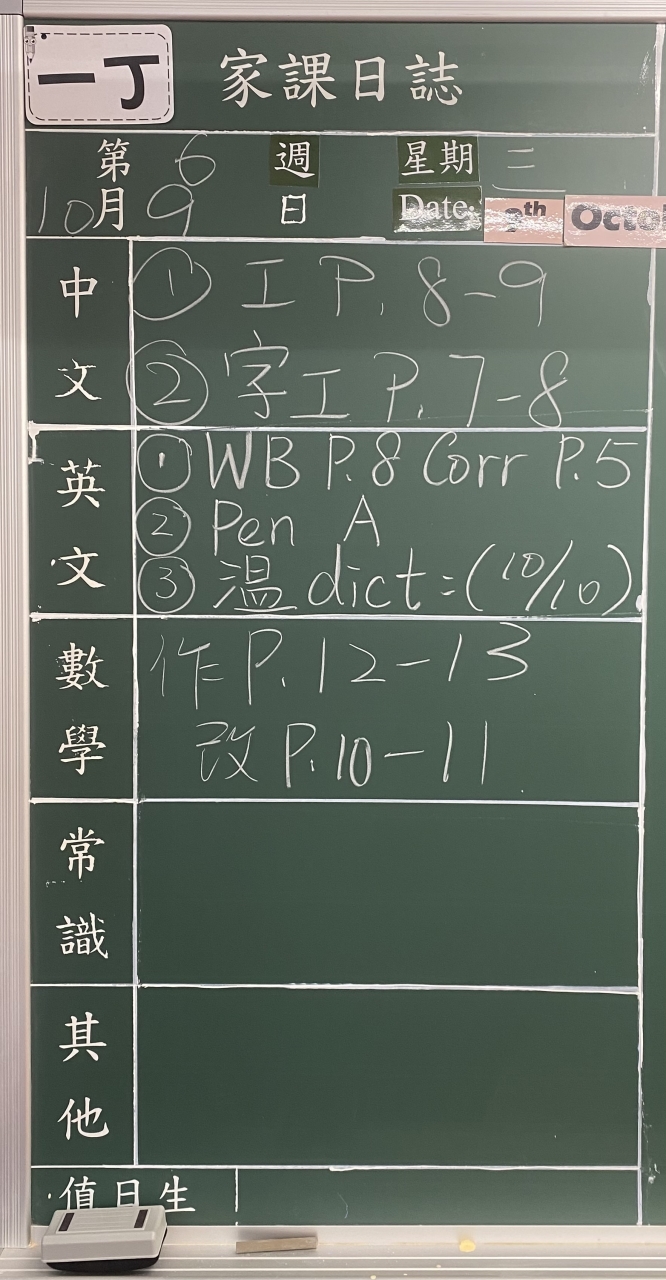 一丁 家課日誌
第 6 週 星期 三
10月 9 日 Date: 9th Octo
中文
① 工 P. 8-9
② 字工 P. 7-8
英文
① WB P.8 Corr P.5
② Pen A
③ 温 dict: (10/10)
數學
作 P. 12-13
改 P. 10-11
常識
其他
值日生